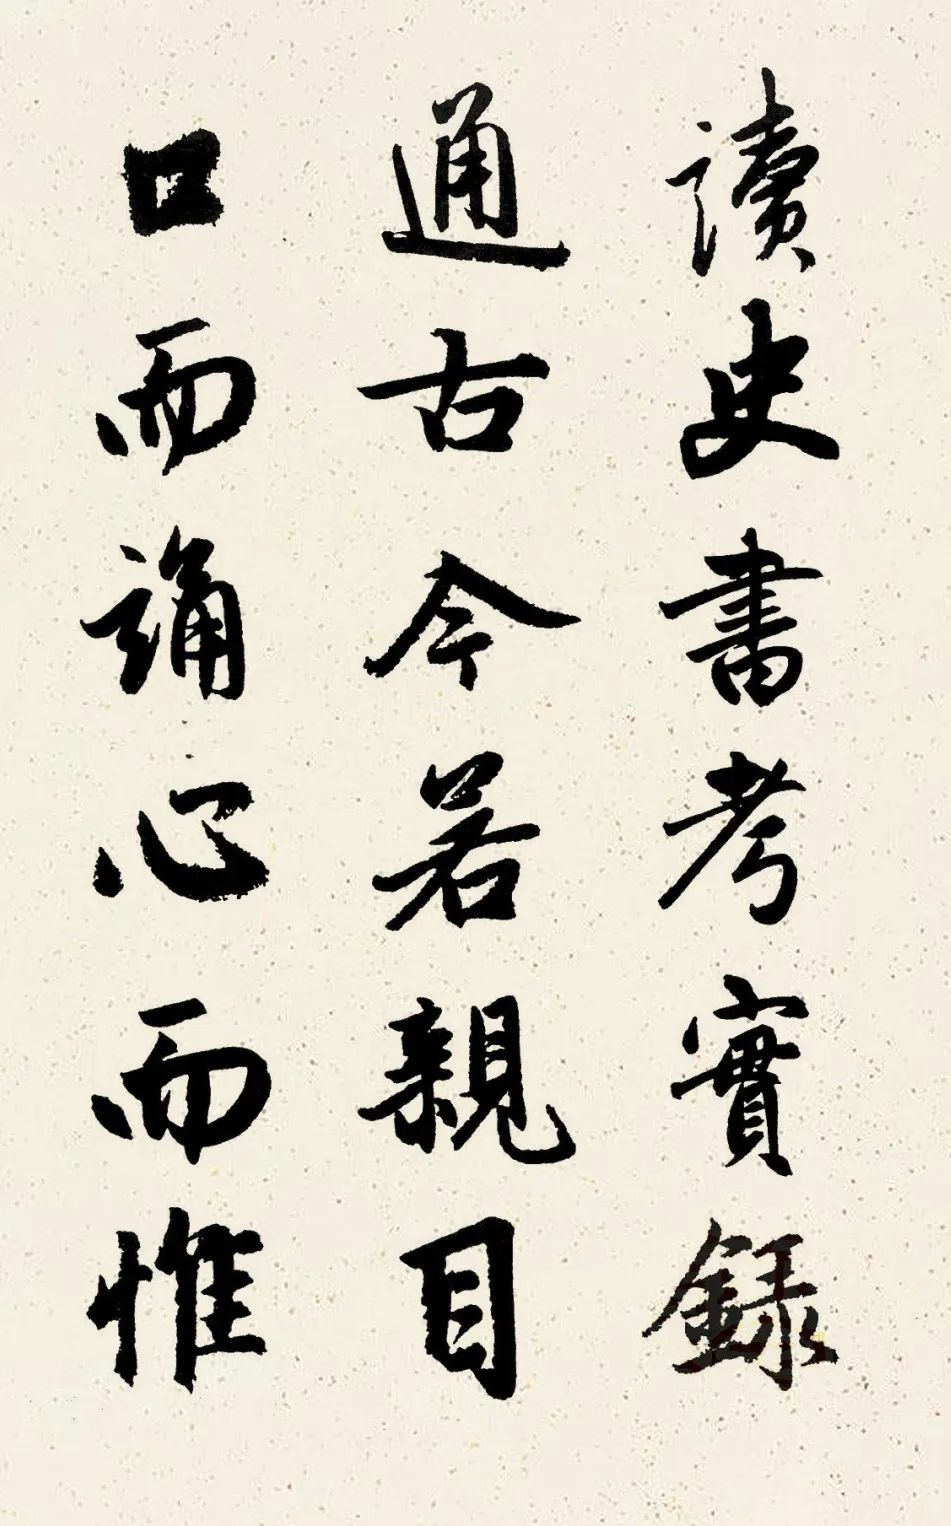 讀史書考實錄
通古今若親目
口而誦心而惟